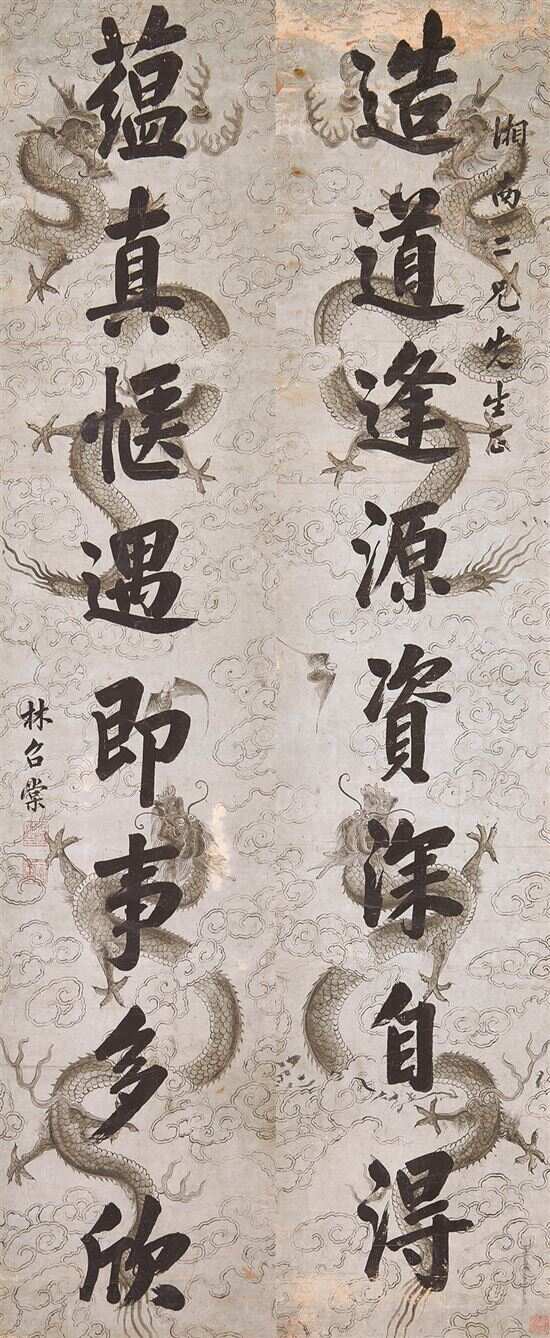 湘南二兄先生正
造道逢源資深自得
蘊真愜遇即事多欣
林召棠